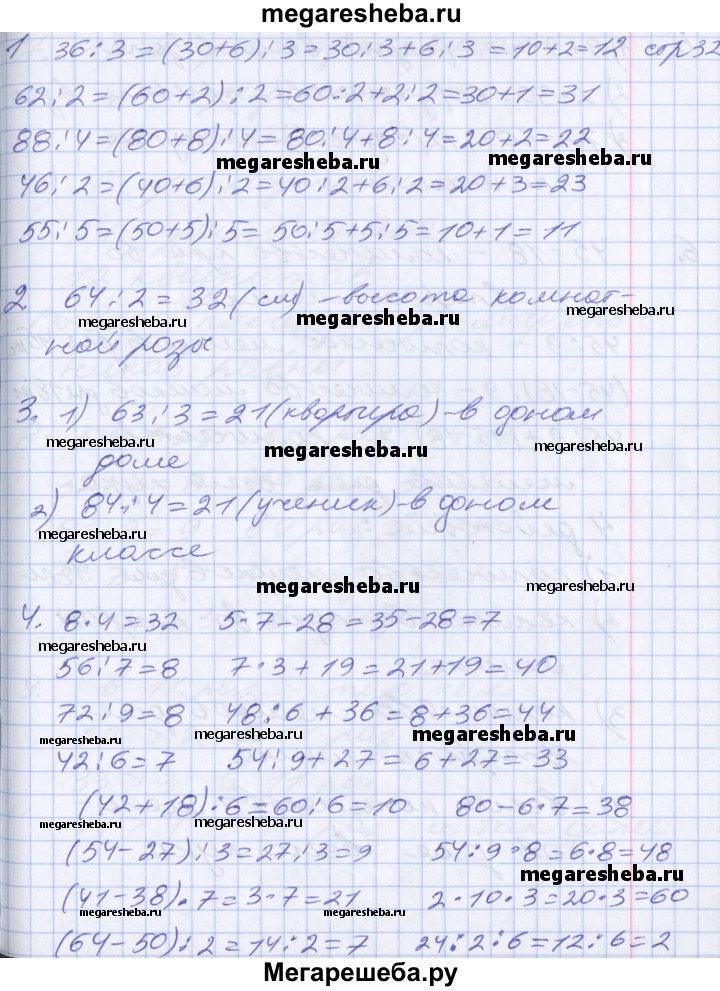 megaresheba.ru
1 36:3=(30+6):3=30:3+6:3=10+2=12 стр 32
62:2=(60+2):2=60:2+2:2=30+1=31
88:4=(80+8):4=80:4+8:4=20+2=22
megaresheba.ru megaresheba.ru
46:2=(40+6):2=40:2+6:2=20+3=23
55:5=(50+5):5=50:5+5:5=10+1=11
2 64:2=32(см) -высота комнат-
megaresheba.ru megaresheba.ru megaresheba.ru
ной розы
3. 1) 63:3=21(квартира)-в доном
megaresheba.ru megaresheba.ru megaresheba.ru
доме
2) 84:4=21(ученик)-в доном
megaresheba.ru megaresheba.ru megaresheba.ru
классе
megaresheba.ru megaresheba.ru
4. 8·4=32 5·7-28=35-28=7
megaresheba.ru
56:7=8 7·3+19=21+19=40
72:9=8 48:6+36=8+36=44
megaresheba.ru megaresheba.ru megaresheba.ru
42:6=7 54:9+27=6+27=33
(42+18):6=60:6=10 80-6·7=38
megaresheba.ru megaresheba.ru megaresheba.ru
(54-27):3=27:3=9 54:9·8=6·8=48
megaresheba.ru
(41-38)·7=3·7=21 2·10·3=20·3=60
megaresheba.ru megaresheba.ru megaresheba.ru
(64-50):2=14:2=7 24:2:6=12:6=2
Мегарешеба.ру